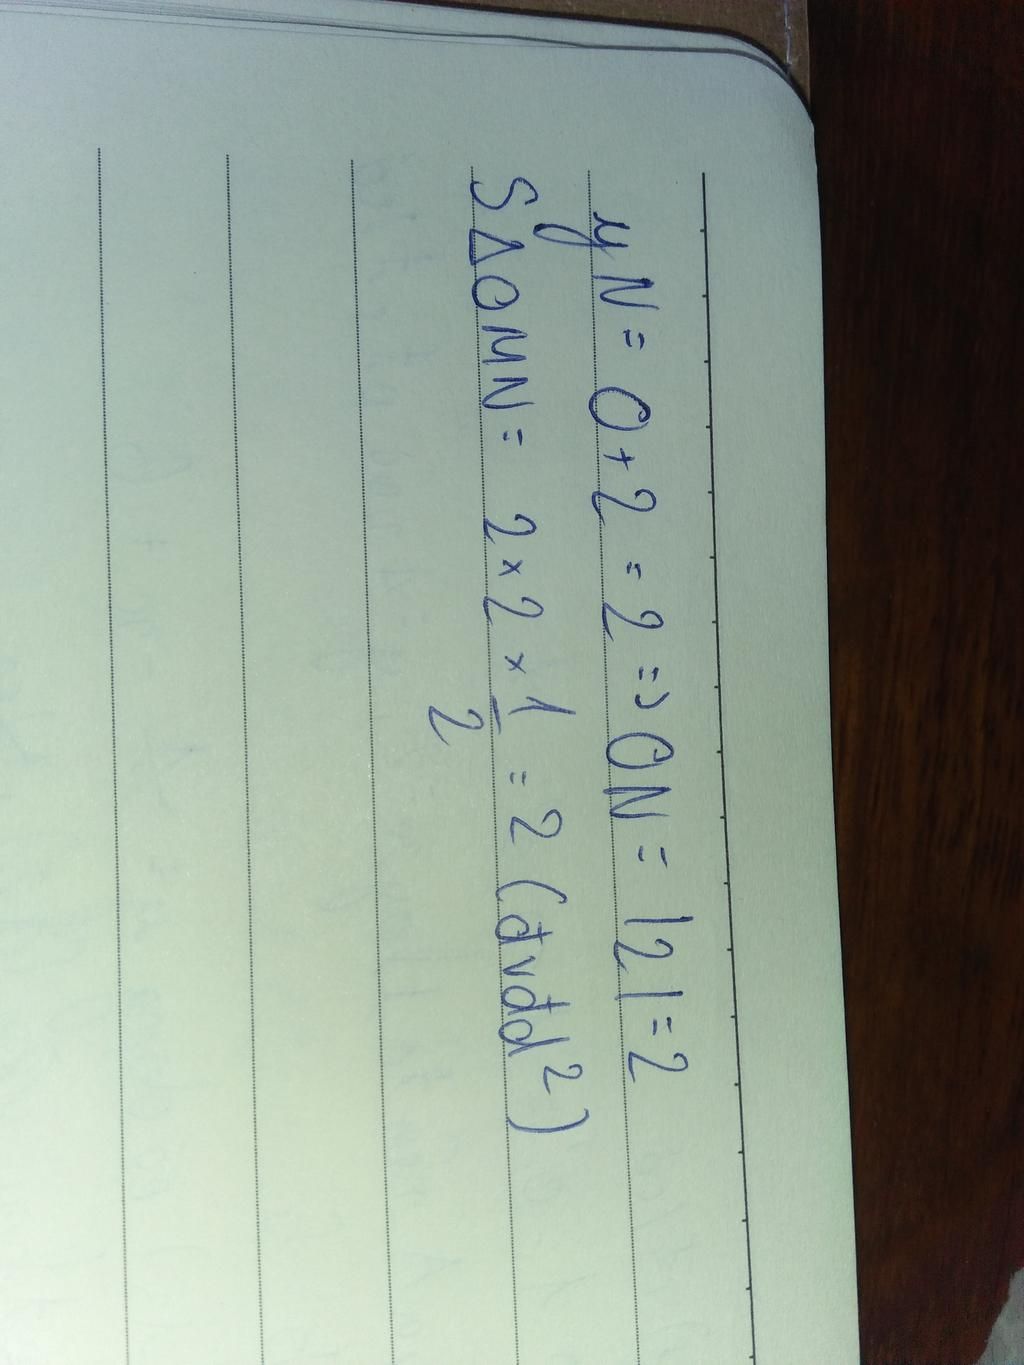 yN = 0 + 2 = 2 => ON = |2| = 2
SΔOMN = 2 × 2 × 1/2 = 2 (đvđd²)